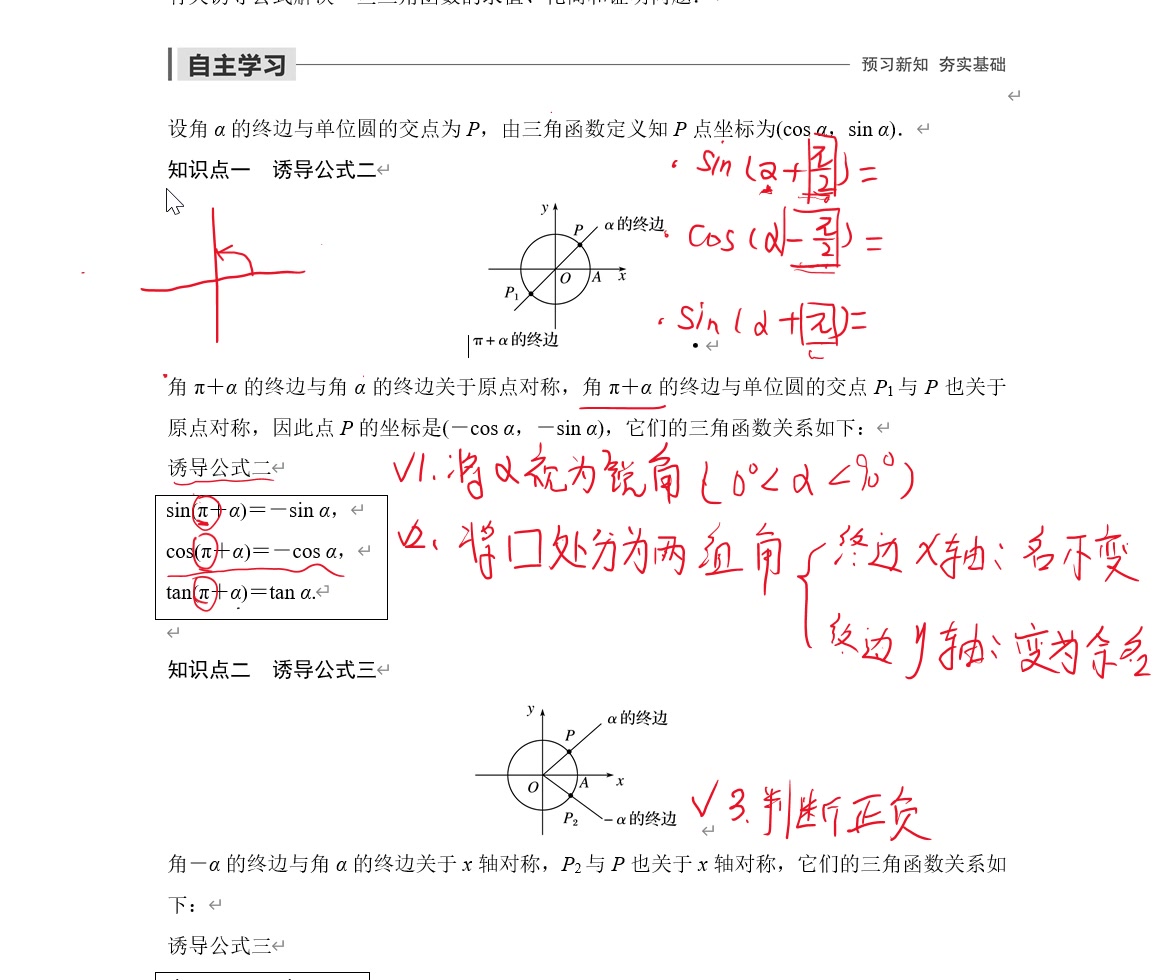 自主学习
预习新知 夯实基础
设角 α 的终边与单位圆的交点为 P，由三角函数定义知 P 点坐标为(cos α，sin α)．
知识点一 诱导公式二
sin(α+π/2)=
cos(α-π/2)=
sin(α+π)=
y
P
α的终边
O
A
x
P₁
π+α的终边
角 π＋α 的终边与角 α 的终边关于原点对称，角 π＋α 的终边与单位圆的交点 P₁与 P 也关于
原点对称，因此点 P 的坐标是(－cos α，－sin α)，它们的三角函数关系如下：
诱导公式二
√1. 将α视为锐角(0°<α<90°)
sin(π＋α)＝－sin α，
cos(π＋α)＝－cos α，
tan(π＋α)＝tan α.
√2. 将口处分为两组角
终边x轴：名不变
终边y轴：变为余名
知识点二 诱导公式三
y
P
α的终边
O
A
x
P₂
－α的终边
√3.判断正负
角－α 的终边与角 α 的终边关于 x 轴对称，P₂与 P 也关于 x 轴对称，它们的三角函数关系如
下：
诱导公式三